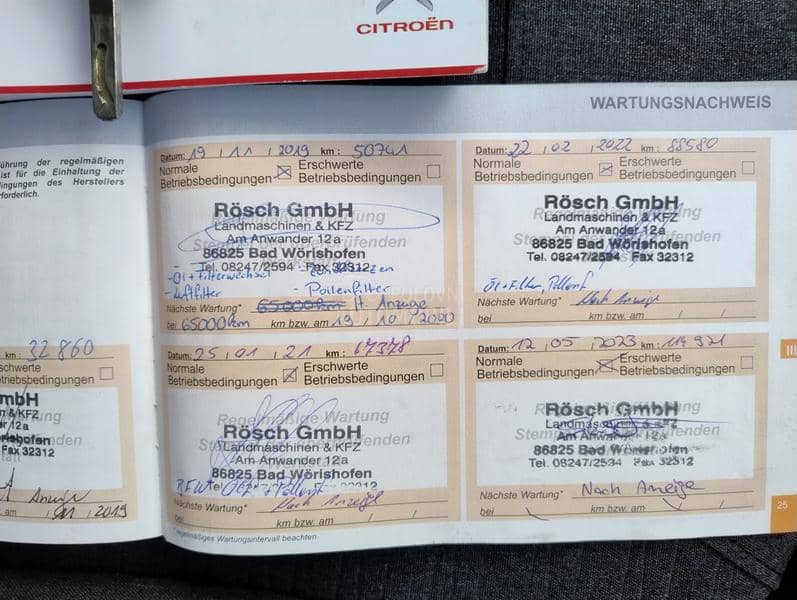 CITROËN
WARTUNGSNACHWEIS
führung der regelmäßigen
ist für die Einhaltung der
ingungen des Herstellers
forderlich.
km: 32 860
schwerte
triebsbedingungen
mbH
n & KFZ
er 12a
rishofen
Fax 32312
am 11 2019
Datum: 19 / 11 / 2019 km: 50741
Normale Erschwerte
Betriebsbedingungen Betriebsbedingungen
Regelmäßige Wartung
Rösch GmbH
Landmaschinen & KFZ
Am Anwander 12a
86825 Bad Wörishofen
Tel. 08247/2594 Fax 32312
- Öl + Filterwechsel
- Luftfilter - Pollenfilter
Nächste Wartung* 65000km lt. Anzeige
bei 65000km km bzw. am 19 / 10 / 2020
Datum: 25 / 01 / 21 km: 67378
Normale Erschwerte
Betriebsbedingungen Betriebsbedingungen
Regelmäßige Wartung
Rösch GmbH
Landmaschinen & KFZ
Am Anwander 12a
86825 Bad Wörishofen
Nächste Wartung* Nach Anzeige
km bzw. am / /
*regelmäßiges Wartungsintervall beachten
Datum: 22 / 02 / 2022 km: 88580
Normale Erschwerte
Betriebsbedingungen Betriebsbedingungen
Rösch GmbH
Landmaschinen & KFZ
Am Anwander 12a
86825 Bad Wörishofen
Tel. 08247/2594 Fax 32312
Öl + Filter, Pollenf
Nächste Wartung* Nach Anzeige
bei km bzw. am / /
Datum: 12 / 05 / 2023 km: 114921
Normale Erschwerte
Betriebsbedingungen Betriebsbedingungen
Rösch GmbH
Landmaschinen & KFZ
Am Anwander 12a
86825 Bad Wörishofen
Tel. 08247/2594 Fax 32312
Nächste Wartung* Nach Anzeige
bei km bzw. am / /
III
25